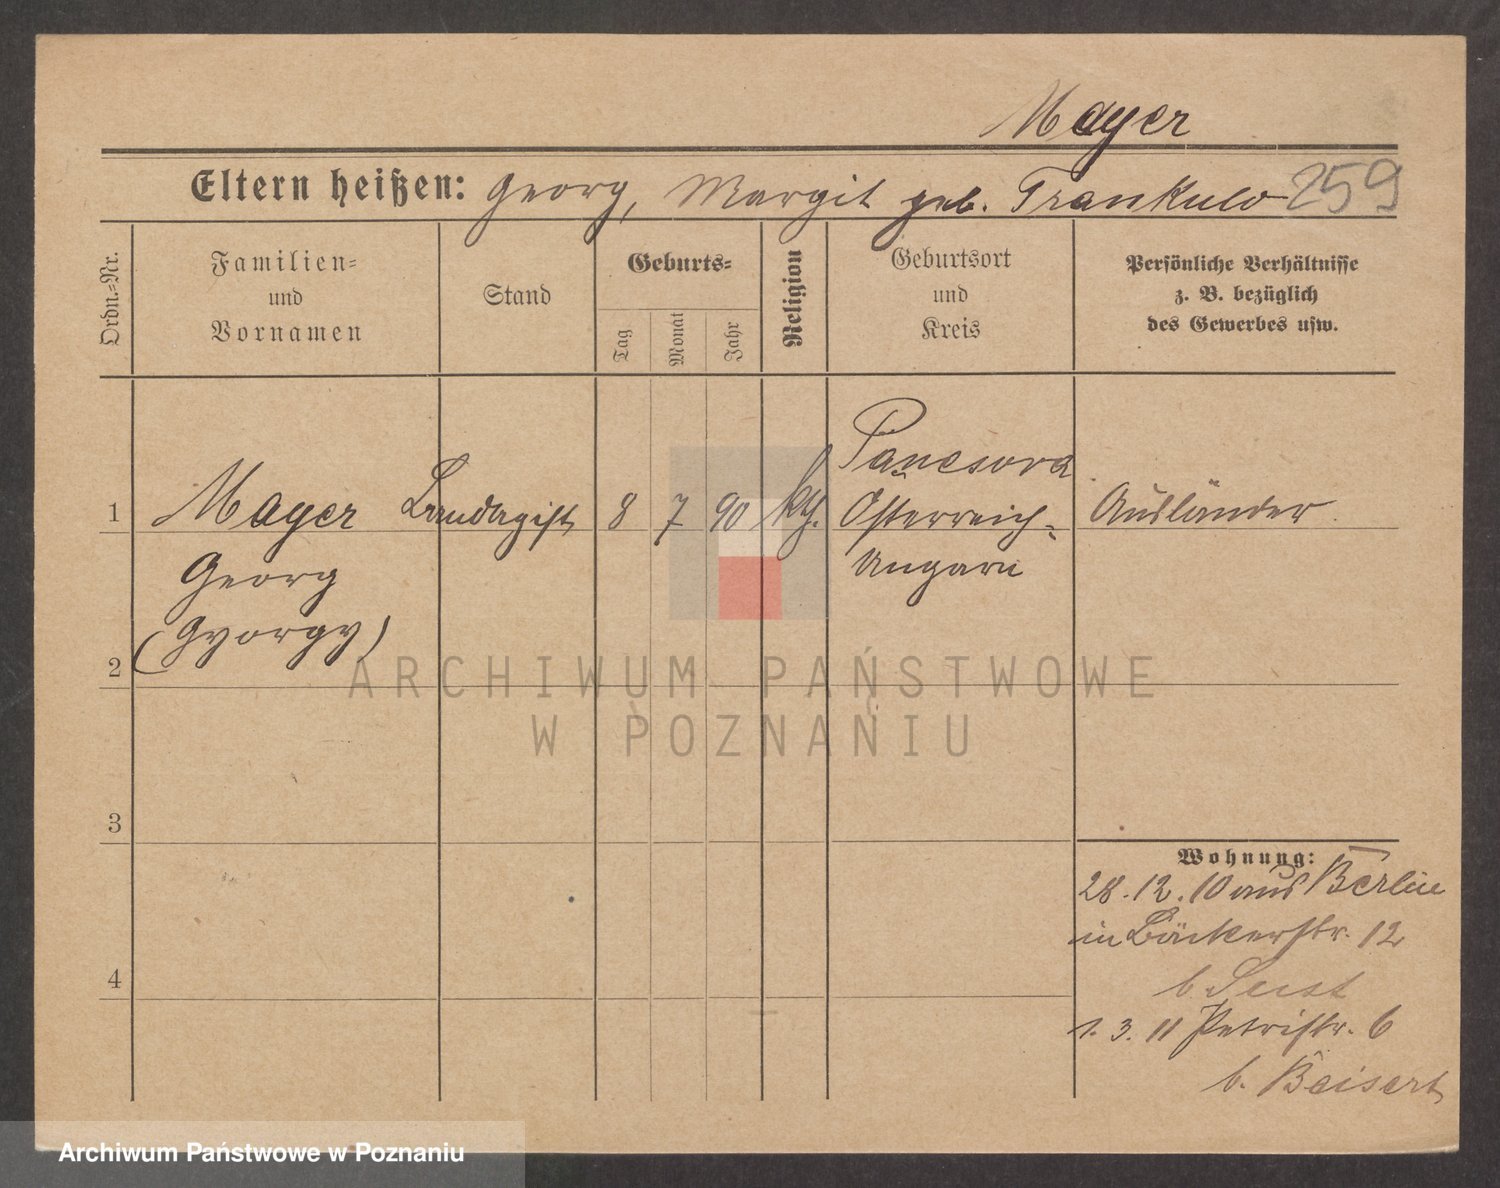 Mayer
Eltern heißen: Georg, Margit geb. Trankulo 259
Ordn.-Nr.
Familien-
und
Vornamen
Stand
Geburts-
Tag
Monat
Jahr
Religion
Geburtsort
und
Kreis
Persönliche Verhältnisse
z. B. bezüglich
des Gewerbes usw.
1 Mayer 8 7 90 kth. Pancsova Ausländer
Österreich-
Georg Ungarn
2 (Gyorgy)
ARCHIWUM PAŃSTWOWE
W POZNANIU
3
Wohnung:
28.12.10 aus Berlin
in Bäckerstr. 12
4
b. Seist
1.3.11 Petristr. 6
b. Beisert
Archiwum Państwowe w Poznaniu